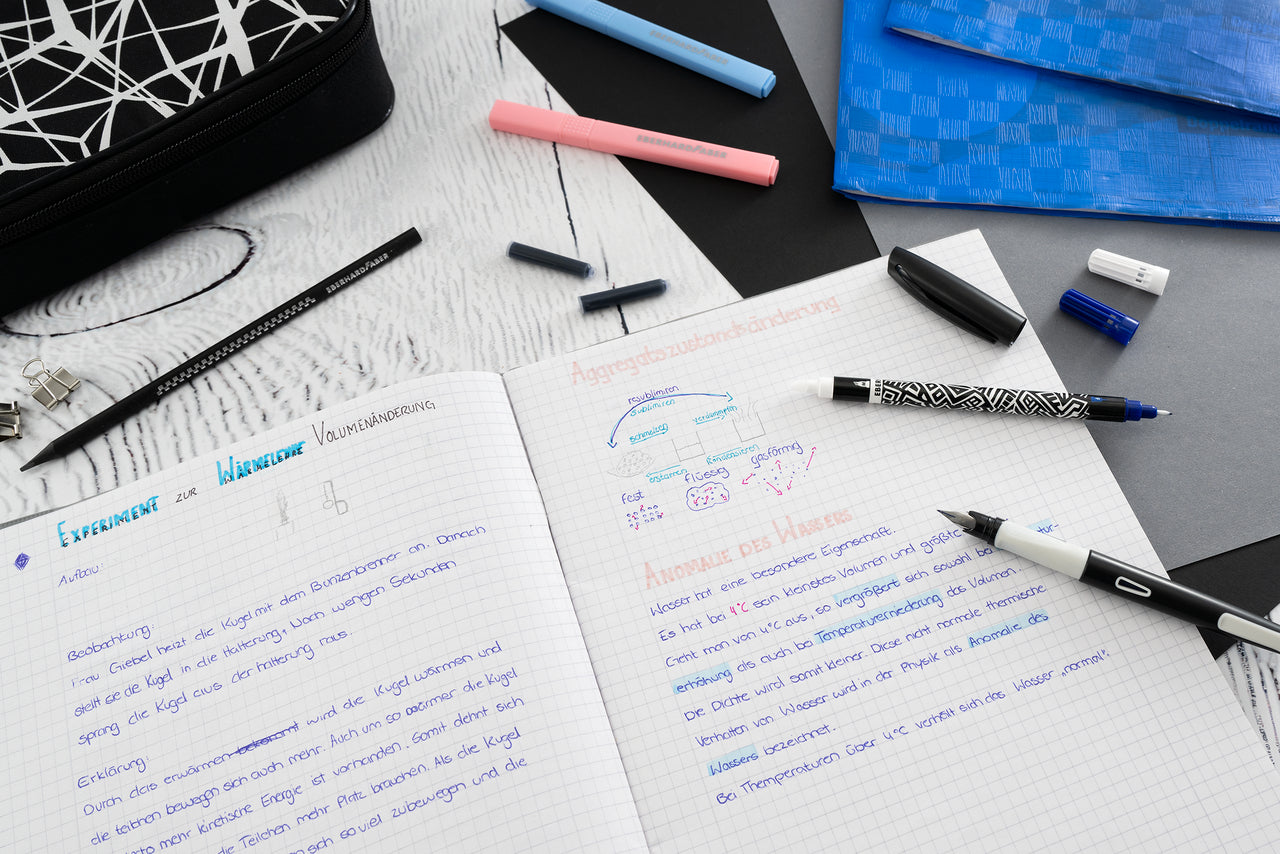 EBERHARDFABER
EBERHARDFABER
EBERHARDFABER
EBER
EXPERIMENT ZUR WÄRMELEHRE VOLUMENÄNDERUNG
Aufbau:
Beobachtung:
Frau Giebel heizt die Kugel mit dem Bunzenbrenner an. Danach
stellt sie die Kugel in die Halterung. Nach wenigen Sekunden
sprang die Kugel aus der Halterung raus.
Erklärung:
Durch das erwärmen bekommt wird die Kugel wärmen und
die teilchen bewegen sich auch mehr. Auch um so wärmer die Kugel
desto mehr kinetische Energie ist vorhanden. Somit dehnt sich
die Teilchen mehr Platz brauchen. Als die Kugel
sich so viel zubewegen und die
Aggregatszustandsänderung
resublimiren
sublimiren
schmelzen
verdampfen
erstarren
kondensieren
fest
flüssig
gasförmig
ANOMALIE DES WASSERS
Wasser hat eine besondere Eigenschaft.
Es hat bei 4°C sein kleinstes Volumen und größte
Geht man von 4°C aus, so vergrößert sich sowohl bei tur-
erhöhung als auch bei Temperaturerniederung das Volumen.
Die Dichte wird somit kleiner. Diese nicht normale thermische
Verhalten von Wasser wird in der Physik als Anomalie des
Wassers bezeichnet.
Bei Themperaturen über 4°C verhält sich das Wasser „normal".